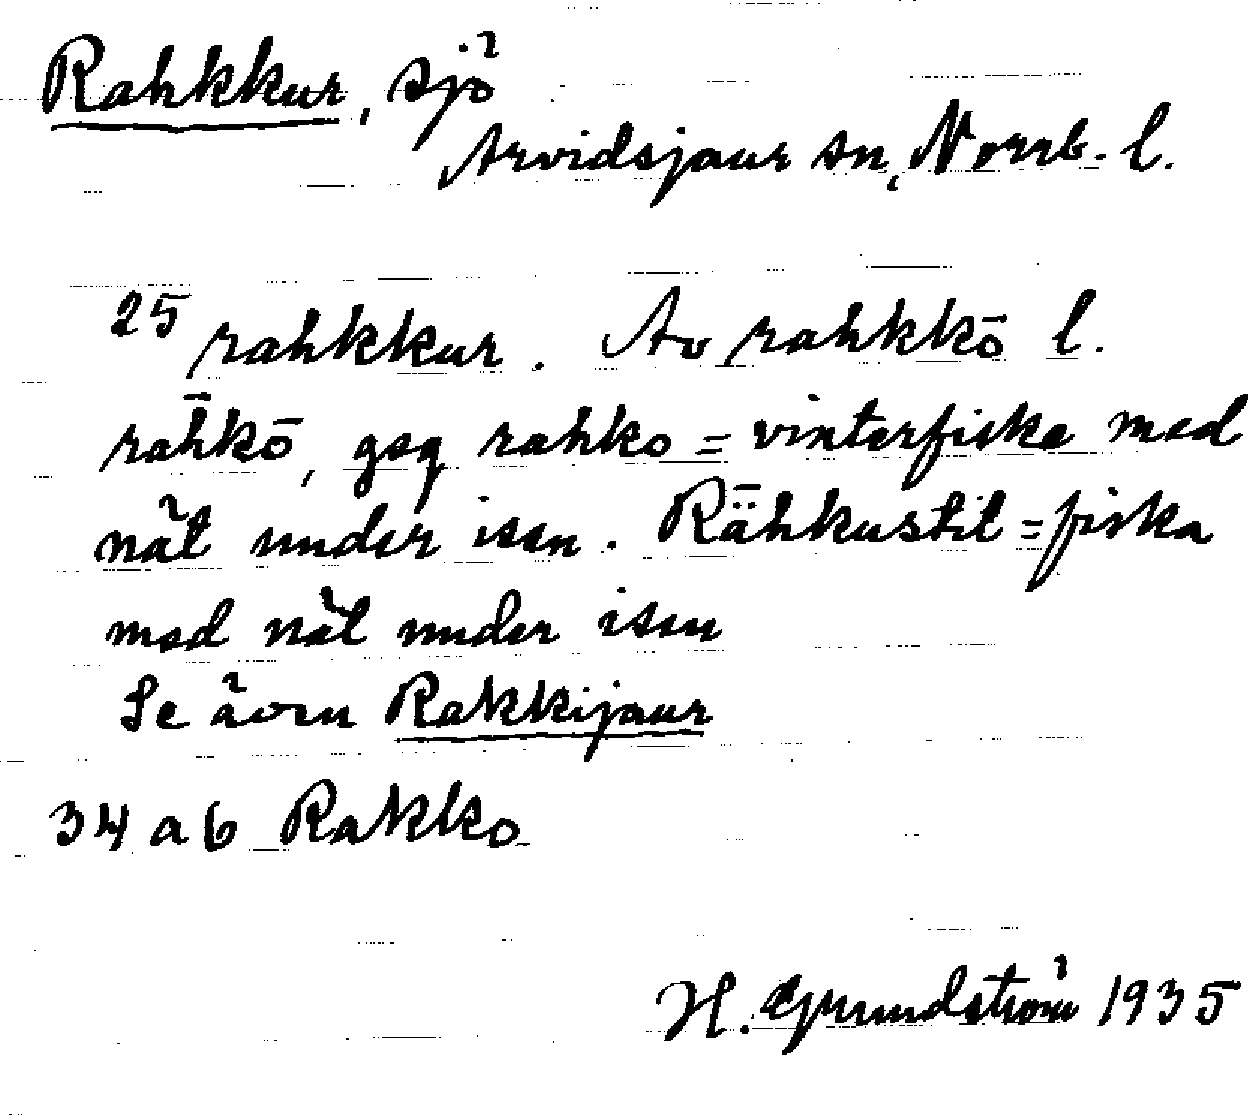 Rahkkur, sjö
Arvidsjaur sn, Norrb. l.
25 rahkkur. Av rahkkō l.
rāhkō, gsg rahko = vinterfiske med
nät under isen. Rǟhkustit = fiska
med nät under isen
Se även Rakkijaur
34 a b Rakko
H. Grundström 1935